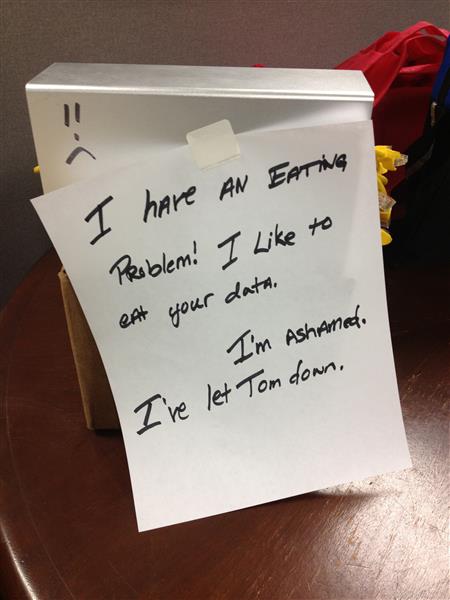 I have an Eating
Problem! I Like to
eat your data.
I'm Ashamed.
I've let Tom down.